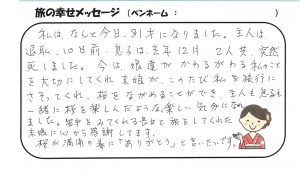 旅の幸せメッセージ (ペンネーム： )
私は、なんと今日、81才になりました。主人は
退職、10日前、息子は、去年12月 2人共、突然
死しました。今は、娘達が かわるがわる 私のこと
を大切にしてくれ 末娘が、このたび 私を旅行に
さそってくれ、桜をながめることができ、主人と息子も
一緒に桜を楽しんだような、楽しい気分になれ
ました。留守をみてくれる長女と 旅をしてくれた
末娘に心から感謝してます。
桜が満開の春に「ありがとう」と言いたいです。